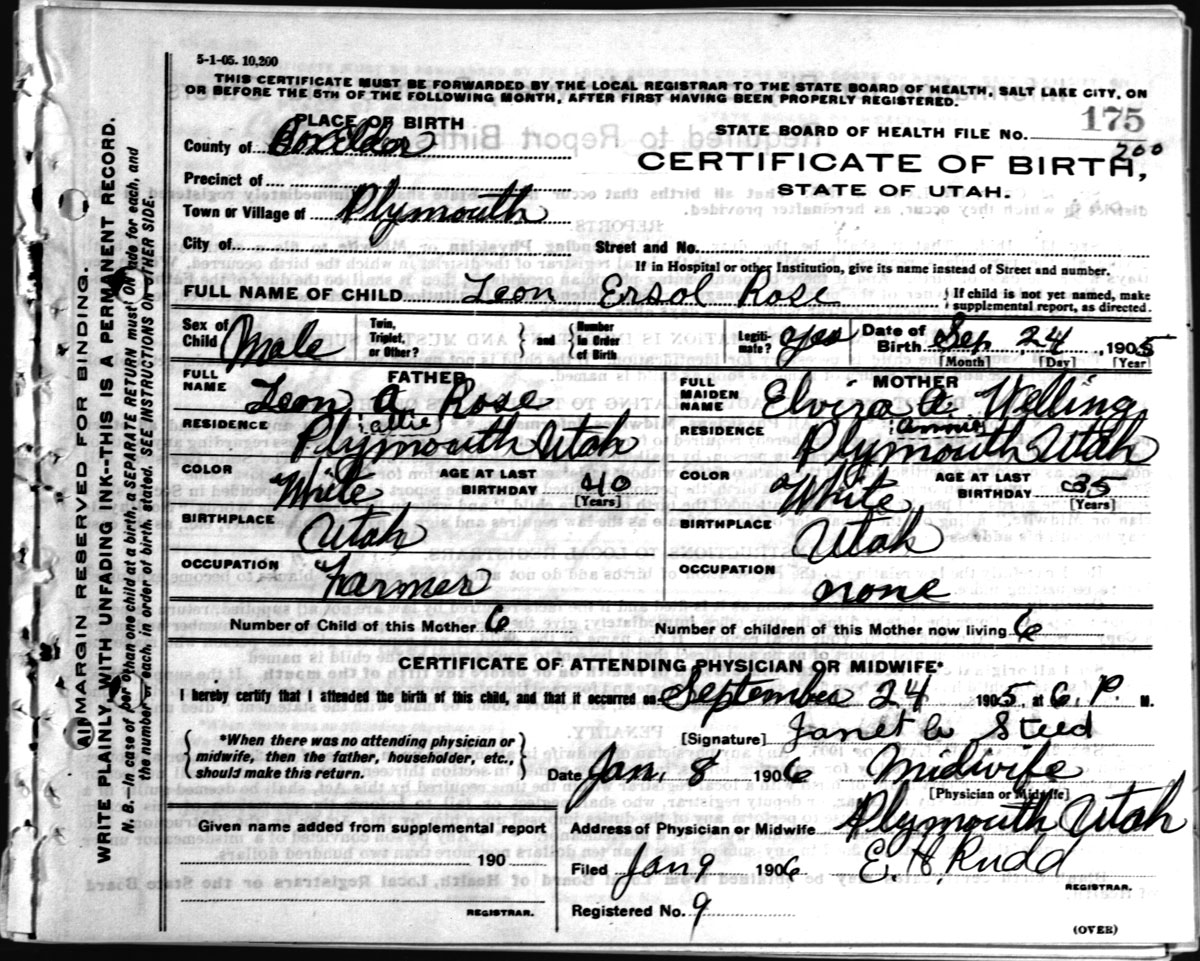 5-1-05. 10,200
THIS CERTIFICATE MUST BE FORWARDED BY THE LOCAL REGISTRAR TO THE STATE BOARD OF HEALTH, SALT LAKE CITY, ON
OR BEFORE THE 5TH OF THE FOLLOWING MONTH, AFTER FIRST HAVING BEEN PROPERLY REGISTERED.
PLACE OF BIRTH
County of Boxelder
Precinct of
Town or Village of Plymouth
City of
STATE BOARD OF HEALTH FILE No. 175
200
CERTIFICATE OF BIRTH,
STATE OF UTAH.
Street and No.
If in Hospital or other Institution, give its name instead of Street and number.
FULL NAME OF CHILD Leon Ersol Rose
If child is not yet named, make
supplemental report, as directed.
Sex of Child Male
Twin, Triplet, or Other? and Number in Order of Birth
Legitimate? yes
Date of Birth Sep 24, 1905
[Month] [Day] [Year]
FATHER
FULL NAME Leon A Rose
(allie)
RESIDENCE Plymouth Utah
COLOR White
AGE AT LAST BIRTHDAY 40
[Years]
BIRTHPLACE Utah
OCCUPATION Farmer
MOTHER
FULL MAIDEN NAME Elvira A. Welling
(annie)
RESIDENCE Plymouth Utah
COLOR White
AGE AT LAST BIRTHDAY 35
[Years]
BIRTHPLACE Utah
OCCUPATION none
Number of Child of this Mother 6
Number of children of this Mother now living 6
CERTIFICATE OF ATTENDING PHYSICIAN OR MIDWIFE*
I hereby certify that I attended the birth of this child, and that it occurred on September 24 1905, at 6, P. M.
*When there was no attending physician or
midwife, then the father, householder, etc.,
should make this return.
[Signature] Janet C Steed
Date Jan. 8 1906 Midwife
[Physician or Midwife]
Given name added from supplemental report
190
REGISTRAR.
Address of Physician or Midwife Plymouth Utah
Filed Jan 9 1906 E. H. Rudd
REGISTRAR.
Registered No. 9
(OVER)
MARGIN RESERVED FOR BINDING.
WRITE PLAINLY WITH UNFADING INK--THIS IS A PERMANENT RECORD.
N. B.--In case of more than one child at a birth, a SEPARATE RETURN must be made for each, and
the number of each, in order of birth, stated. SEE INSTRUCTIONS ON OTHER SIDE.